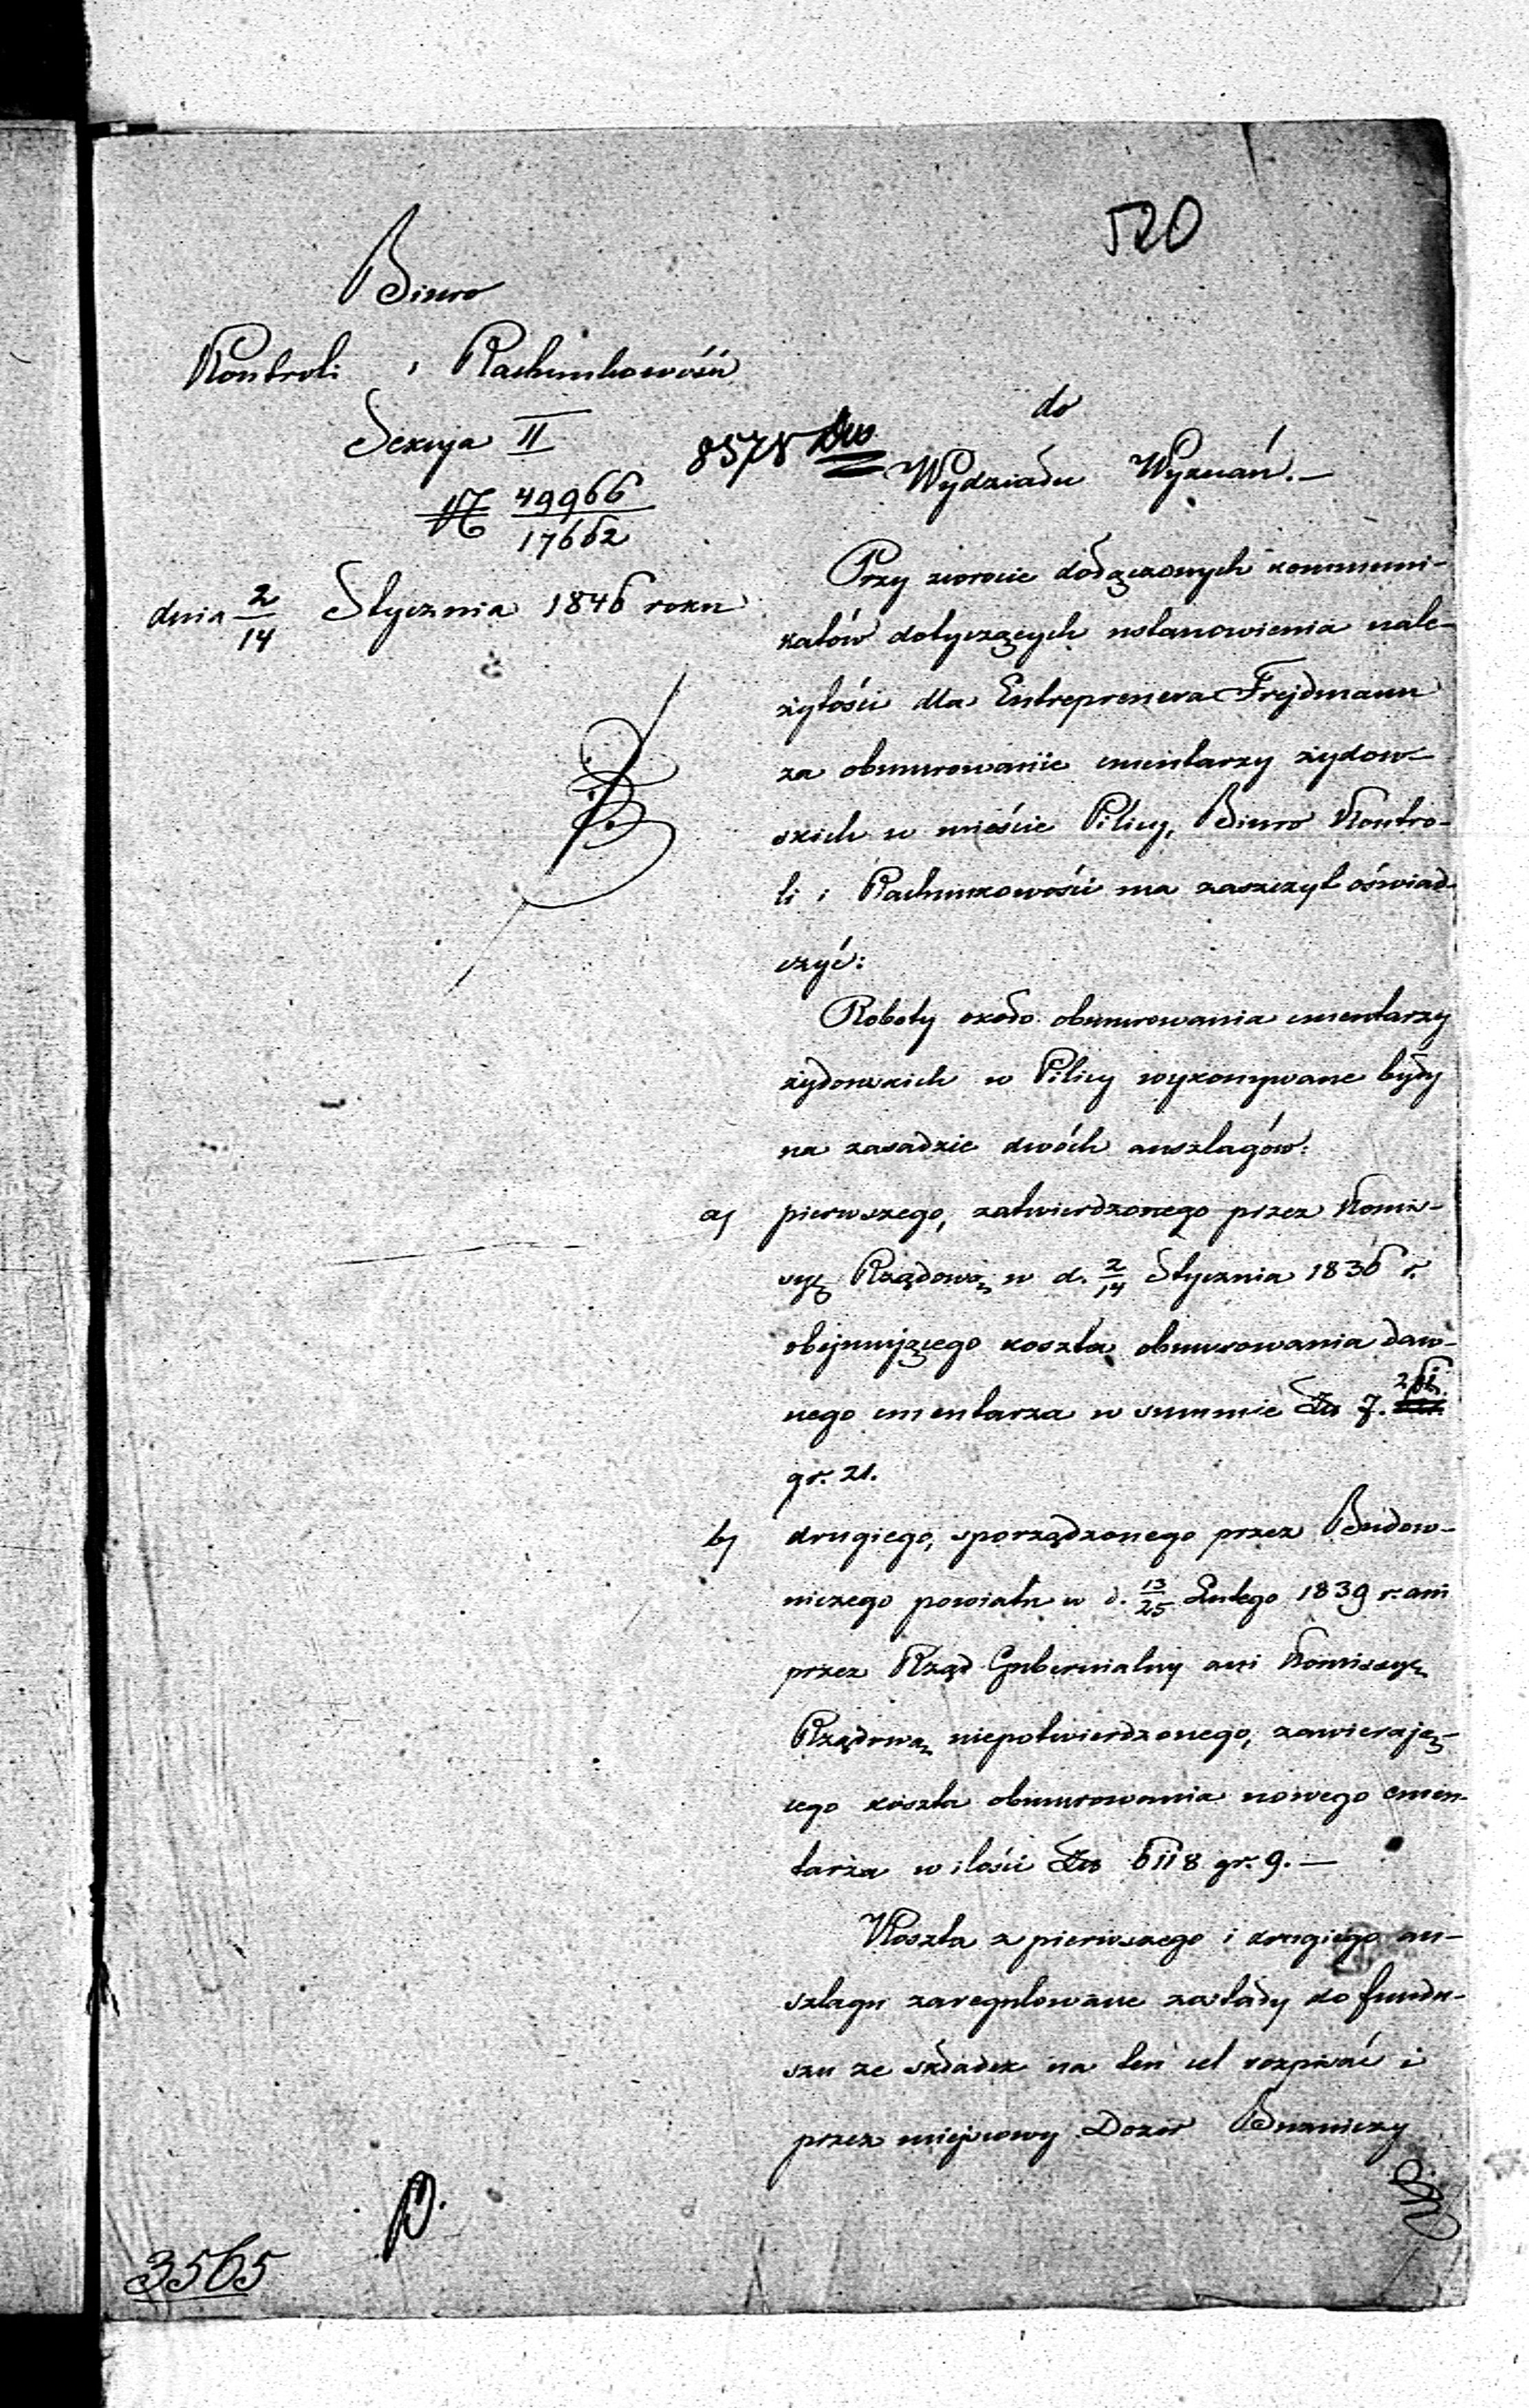 520
Biuro
Kontroli i Rachunkowości
Sekcya II
№ 49966/17662
dnia 2/14 Stycznia 1846 roku
8578
do
Wydziału Wyznań.—
Przy zwrocie dołączonych kommuni-
katów dotyczących ustanowienia nale-
żytości dla Entreprenera Frejdmann
za obmurowanie cmentarzy żydow-
skich w mieście Pilicy, Biuro Kontro-
li i Rachunkowości ma zaszczyt oświad-
czyć:
Roboty około obmurowania cmentarzy
żydowskich w Pilicy wykonywane były
na zasadzie dwóch anszlagów:
a) pierwszego, zatwierdzonego przez Komis-
syą Rządową w d. 2/14 Stycznia 1836 r.
obejmującego koszta obmurowania daw-
nego cmentarza w summie Złp 7.
gr. 21.
b) drugiego, sporządzonego przez Budow-
niczego powiatu w d. 13/25 Lutego 1839 r. ani
przez Rząd Gubernialny ani Kommissyą
Rządową niepotwierdzonego, zawierają-
cego koszta obmurowania nowego cmen-
tarza w ilości Złp 6118 gr. 9.—
Koszta z pierwszego i drugiego an-
szlagu zaregulowane zostały do fundu-
szu ze składek na ten cel rozpisać i
przez miejscowy Dozór Bożniczy
3565